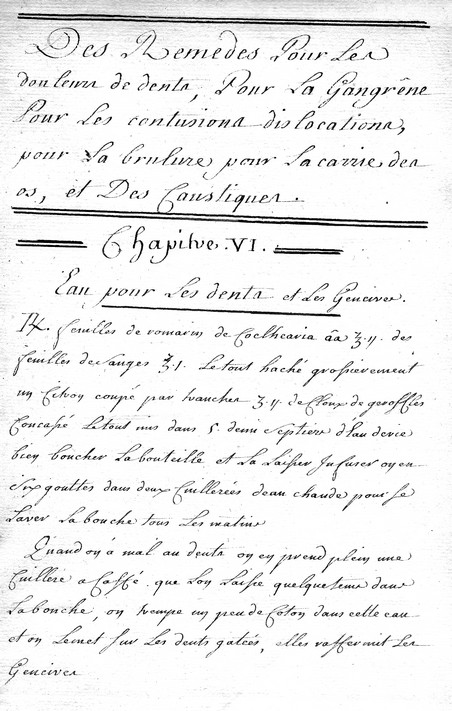 Des Remedes Pour Les
douleurs de dents, Pour La Gangrêne
Pour Les contusions dislocations,
pour La brulure pour La carrie des
os, et Des Caustiques.
Chapitre. VI.
Eau pour Les dents et Les Gencives.
℞. feuilles de romarin de Coclhearia āā ℥.ij. des
feuilles de Sauges ℥.j. Le tout haché grossierement
un Citron coupé par tranches ʒ.ij. de Cloux de geroffles
Concassé Le tout mis dans 5 demi Septiers d'Eau de vie
bien boucher La bouteille et La Laisser Infuser on en
Six gouttes dans deux Cuillerées d'eau chaude pour Se
Laver La bouche tous Les matins
Quand on a mal au dents on en prend plein une
Cuillere a Caffé que L'on Laisse quelque tems dans
La bouche, on trempe un peu de Coton dans cette eau
et on Le met sur Les dents gatées, elles raffermit Les
Gencives